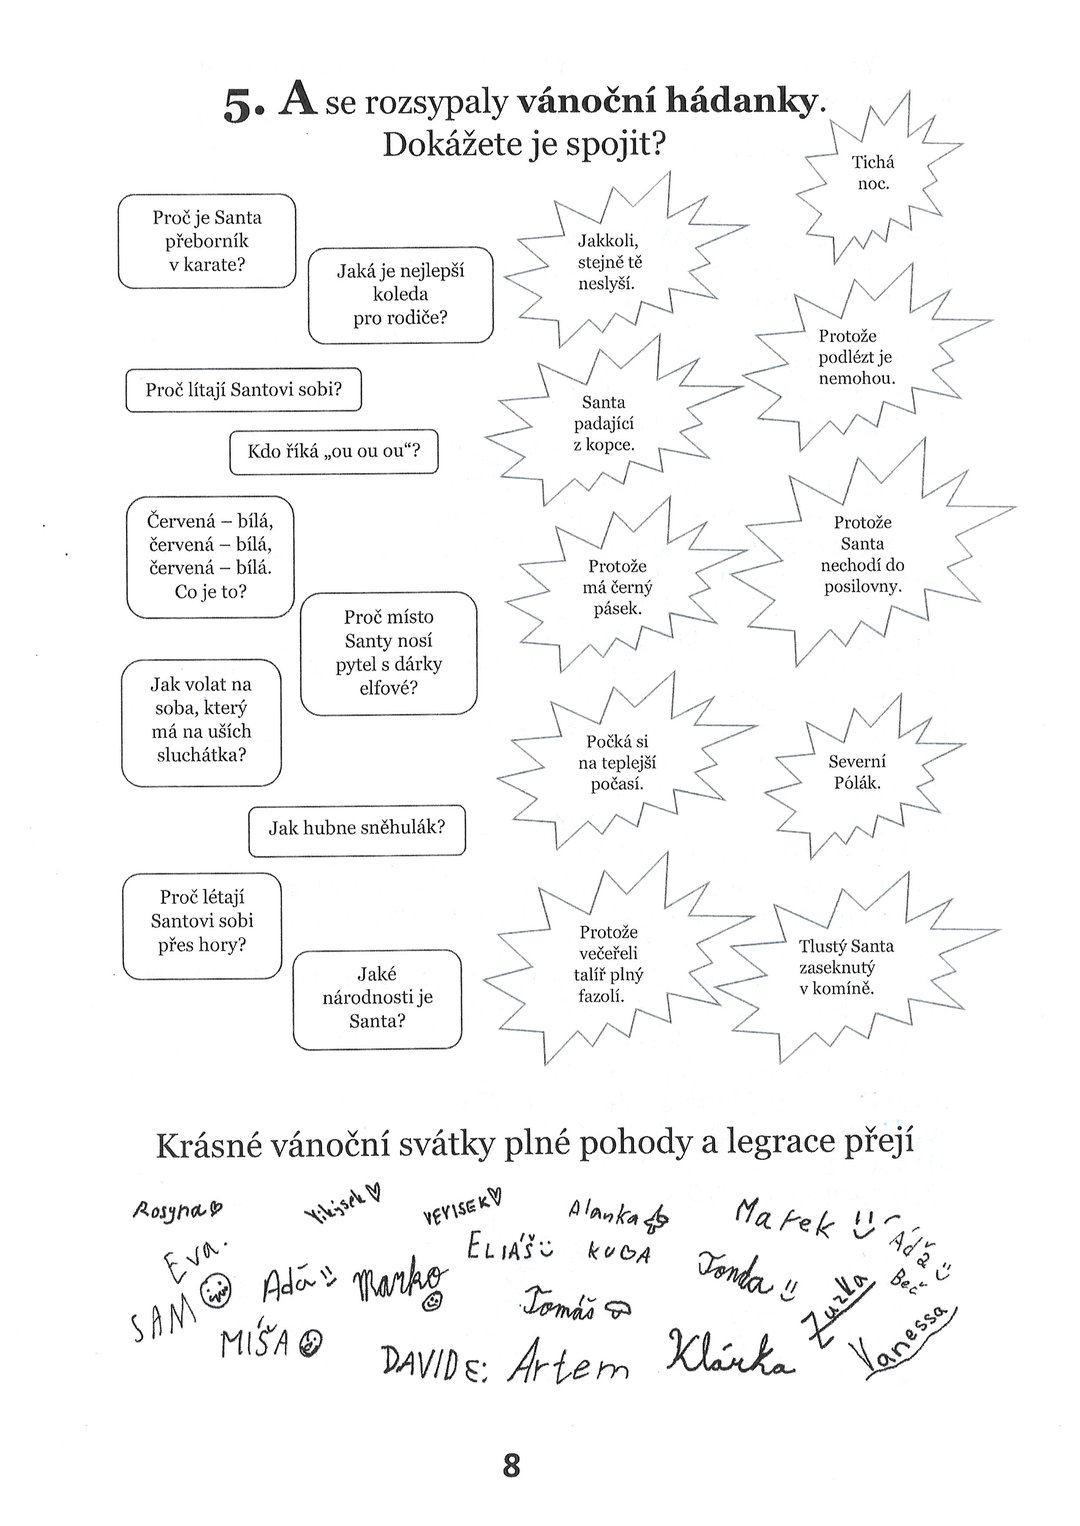 5. A se rozsypaly vánoční hádanky.
Dokážete je spojit?
Proč je Santa
přeborník
v karate?
Jaká je nejlepší
koleda
pro rodiče?
Proč lítají Santovi sobi?
Kdo říká „ou ou ou“?
Červená – bílá,
červená – bílá,
červená – bílá.
Co je to?
Proč místo
Santy nosí
pytel s dárky
elfové?
Jak volat na
soba, který
má na uších
sluchátka?
Jak hubne sněhulák?
Proč létají
Santovi sobi
přes hory?
Jaké
národnosti je
Santa?
Tichá
noc.
Jakkoli,
stejně tě
neslyší.
Protože
podlézt je
nemohou.
Santa
padající
z kopce.
Protože
Santa
nechodí do
posilovny.
Protože
má černý
pásek.
Počká si
na teplejší
počasí.
Severní
Pólák.
Protože
večeřeli
talíř plný
fazolí.
Tlustý Santa
zaseknutý
v komíně.
Krásné vánoční svátky plné pohody a legrace přejí
Rosyna
Alanka
Marek
Eva.
ELIÁŠ
KUBA
Tonda
SAM
Adá
Marko
Tomáš
Zuzka
Vanessa
MÍŠA
DAVID
Artem
Klárka
8